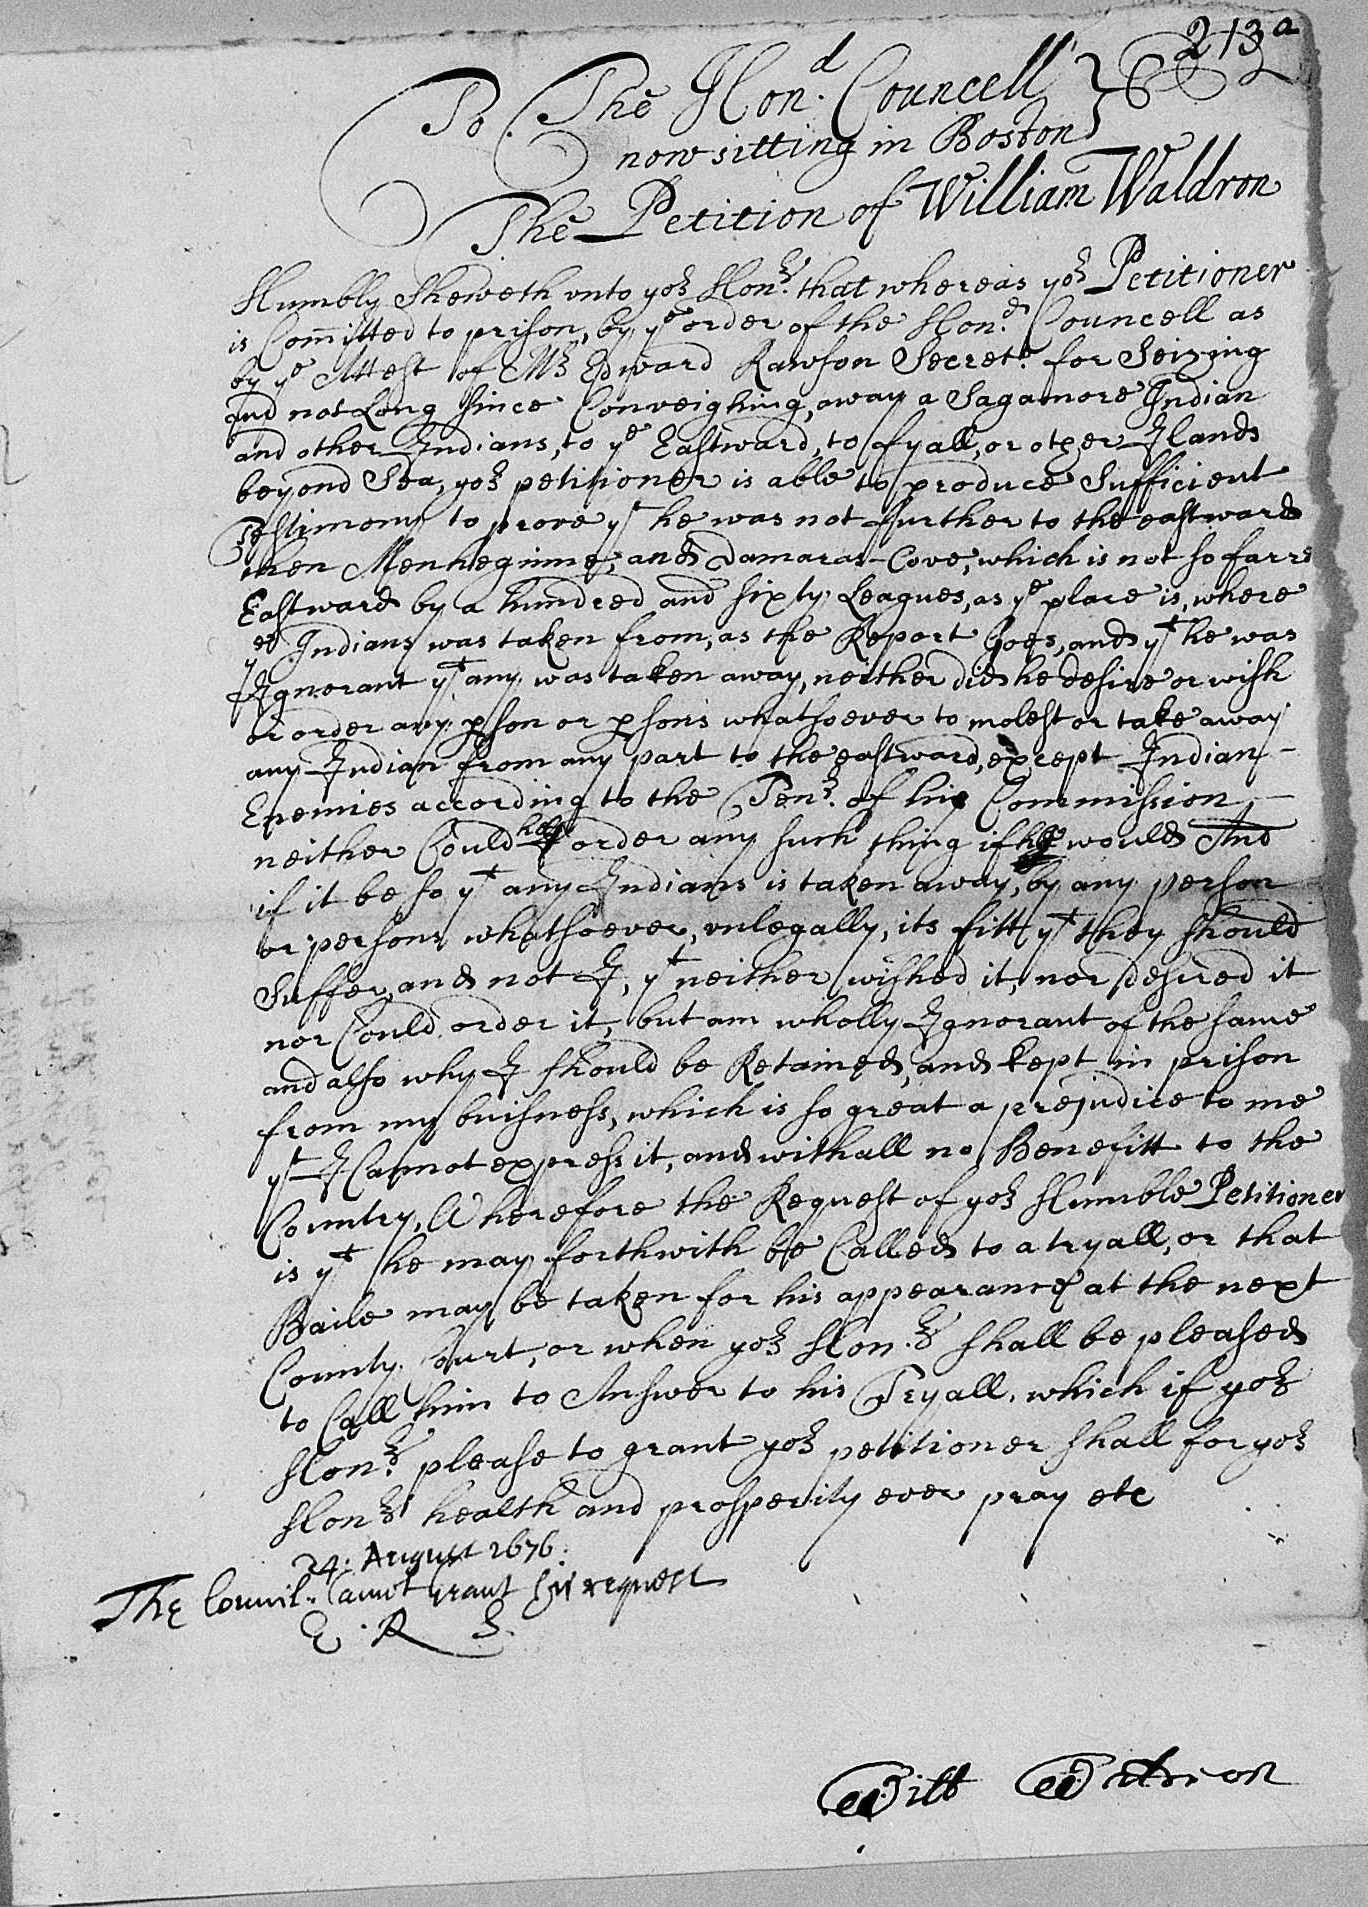 213a
To The Hond. Councell
now sitting in Boston
The Petition of William Waldron
Humbly Sheweth vnto yor Honrs. that whereas yor Petitioner
is Com̄itted to prison, by ye order of the Hond. Councell as
by ye Attest of Mr Edward Rawson Secrete. for Seizing
and not Long Since Conveighing, away a Sagamore Indian
and other Indians, to ye Eastward, to fyall, or other Ilands
beyond Sea, yor petitioner is able to produce Sufficient
Testimony to prove yt he was not further to the eastward
then Menheginne, and Damaras-Cove, which is not so farre
Eastward by a hundred and sixty Leagues, as ye place is, where
ye Indians was taken from, as the Report Goes, and yt he was
Ignorant yt any was taken away, neither did he desire or wish
or order any pson or psons whatsoever to molest or take away
any Indian from any part to the eastward, except Indian-
Enemies according to the Tenr. of his Commission,-
neither Could he order any such thing if he would And
if it be so yt any Indians is taken away, by any person
or persons whatsoever, vnlegally, its fitt yt they should
Suffer, and not I, yt neither wished it, nor desired it
nor Could order it, but am wholly Ignorant of the same
and also why I should be Retained, and kept in prison
from my buisness, which is so great a prejudice to me
yt I Cannot express it, and withall no Benefitt to the
Country, Wherefore the Request of yor Humble Petitioner
is yt he may forthwith be Called to a tryall, or that
Baile may be taken for his appearance at the next
County Court, or when yor Honrs. shall be pleased
to Call him to Answer to his Tryall, which if yor
Honrs. please to grant yor petitioner shall for yor
Honrs health and prosperity ever pray etc
24: August 1676.
The Council. Cannot grant this request
E. R S.
Will Waldron